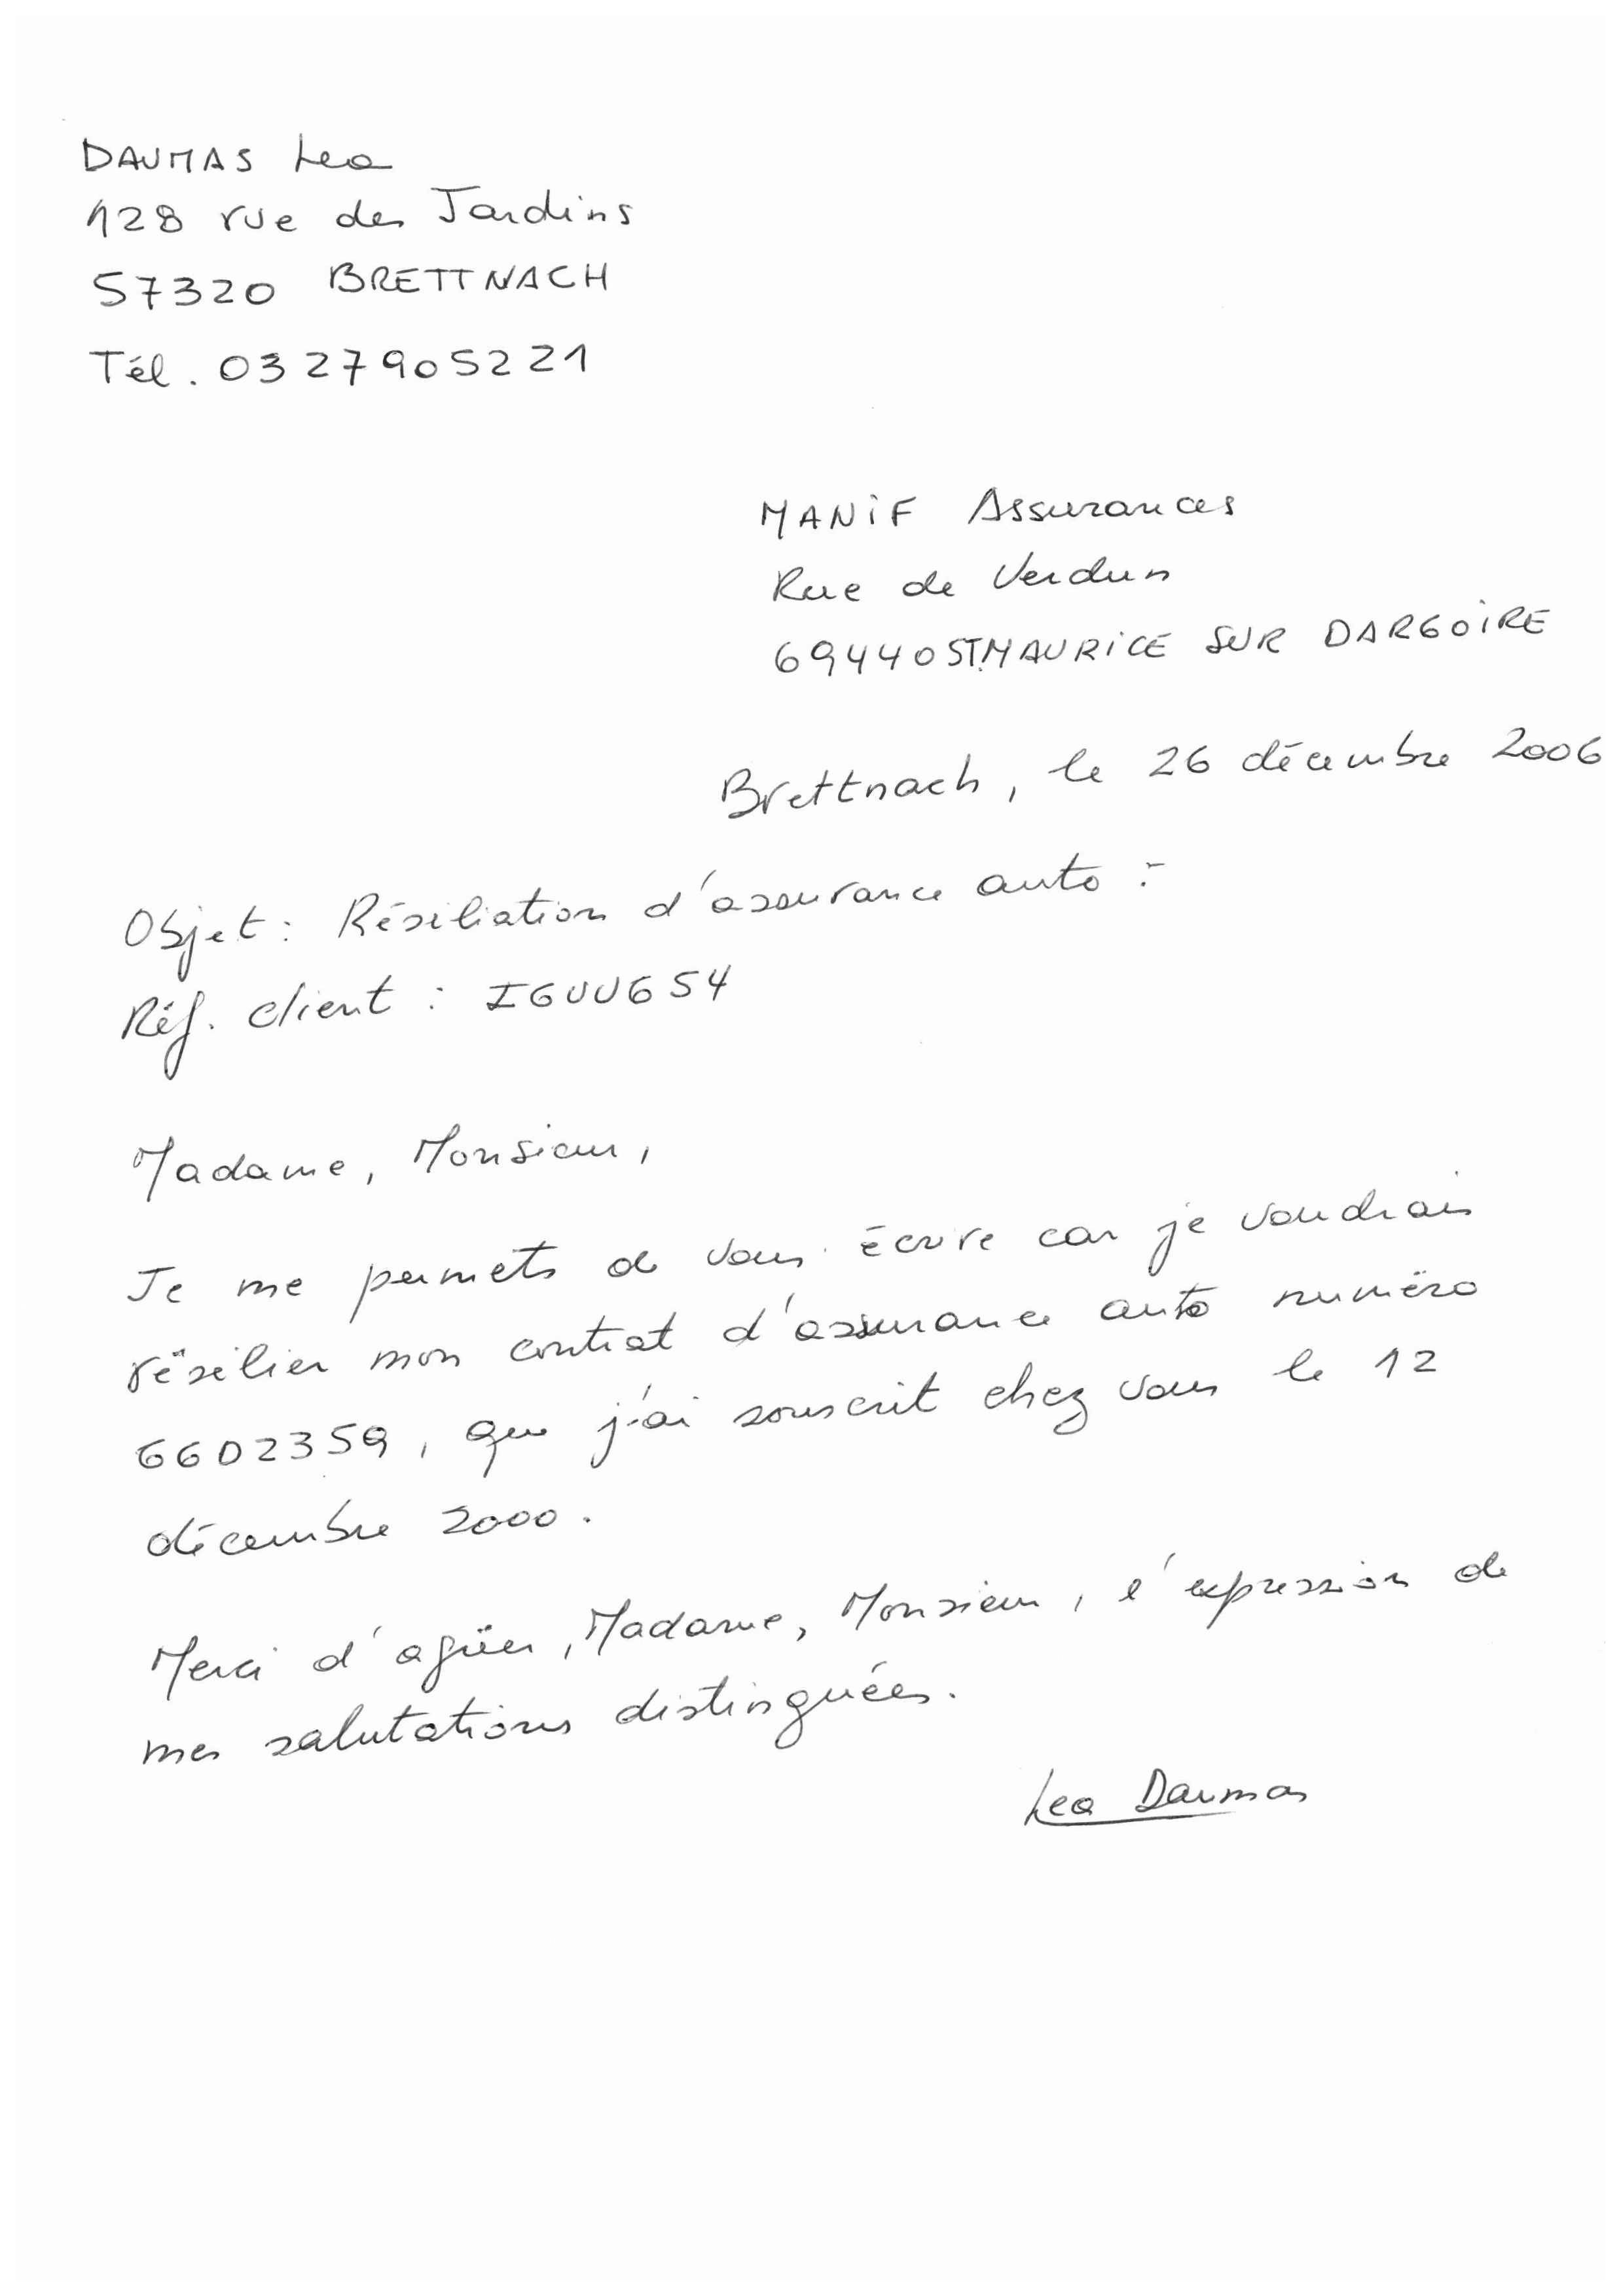 DAUMAS Lea
128 rue des Jardins
57320 BRETTNACH
Tél. 0327905221
MANIF Assurances
Rue de Verdun
69440 ST.MAURICE SUR DARGOIRE
Brettnach, le 26 décembre 2006
Objet : Résiliation d'assurance auto :
Réf. client : IGUUG54
Madame, Monsieur,
Je me permets de vous écrire car je voudrais
résilier mon contrat d'assurance auto numéro
6602359, que j'ai souscrit chez vous le 12
décembre 2000.
Merci d'agréer, Madame, Monsieur, l'expression de
mes salutations distinguées.
Lea Daumas